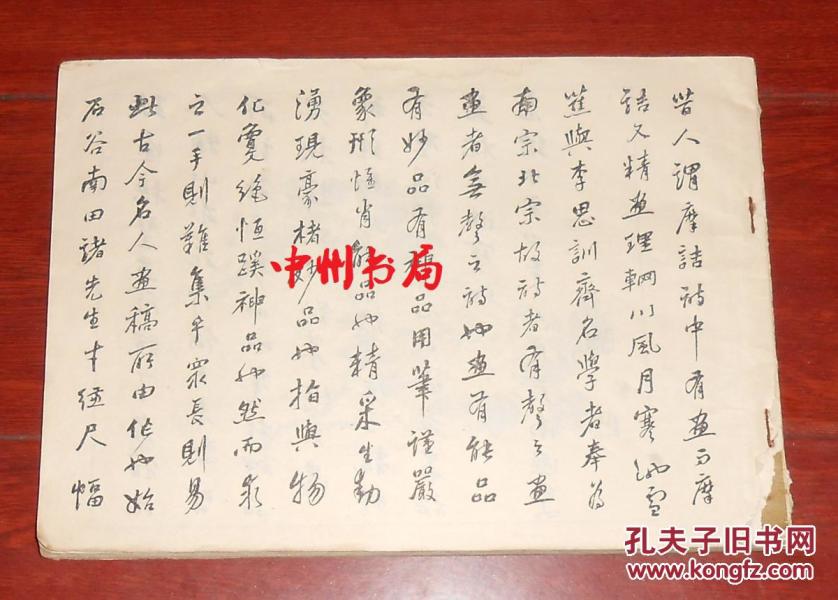 昔人謂摩詰詩中有畫而摩
詰又精畫理輞川風月寒池雪
蕉與李思訓齊名學者奉為
南宗北宗故詩者有聲之畫
畫者無聲之詩也畫有能品
有妙品有神品用筆謹嚴
象形惟肖能品也精采生動
湧現豪楮妙品也指與物
化敻絕恒蹊神品也然而求
之一手則難集乎眾長則易
此古今名人畫稿所由作也始
石谷南田諸先生才經尺幅
中州书局
孔夫子旧书网
www.kongfz.com